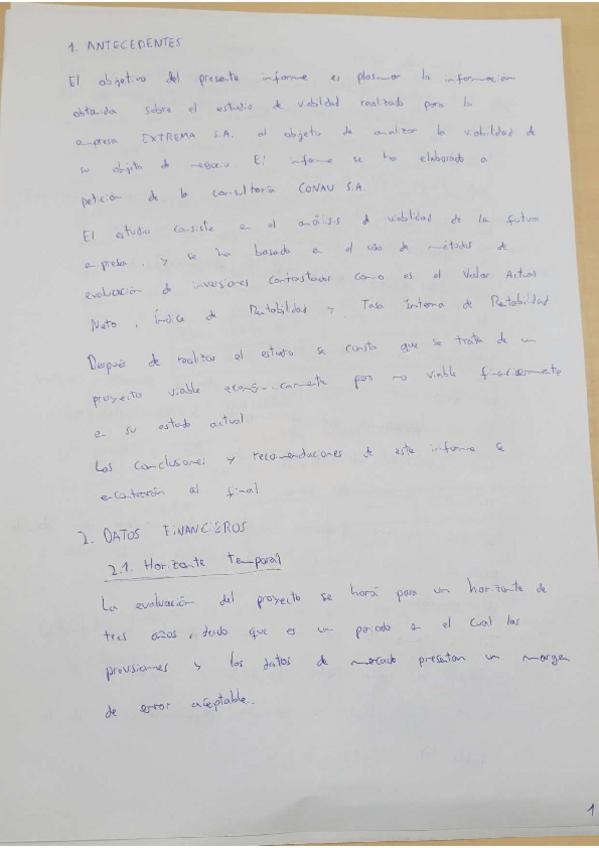 1. ANTECEDENTES
El objetivo del presente informe es plasmar la información
obtenida sobre el estudio de viabilidad realizado para la
empresa EXTREMA S.A. al objeto de analizar la viabilidad de
su objeto de negocio El informe se ha elaborado a
petición de la consultoría CONAU S.A.
El estudio consiste en el análisis de viabilidad de la futura
empresa, y se ha basado en el uso de métodos de
evaluación de inversiones contrastados como es el Valor Actual
Neto, Índice de Rentabilidad y Tasa Interna de Rentabilidad
Después de realizar el estudio se consta que se trata de un
proyecto viable económicamente pero no viable financieramente
en su estado actual.
Las conclusiones y recomendaciones de este informe se
encontrarán al final
2. DATOS FINANCIEROS
2.1. Horizonte Temporal
La evaluación del proyecto se hará para un horizonte de
tres años, dado que es un periodo en el cual las
previsiones y los datos de mercado presentan un margen
de error aceptable.
1